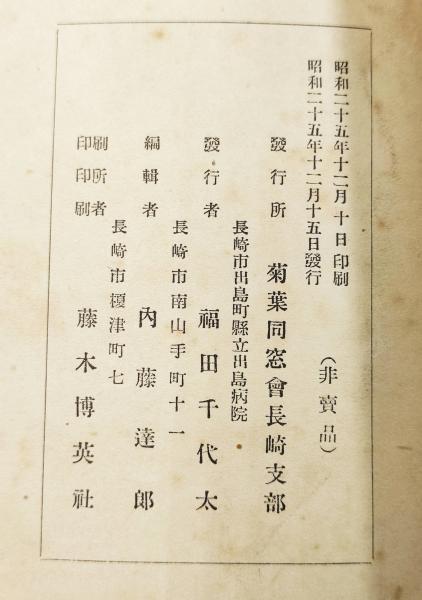 昭和二十五年十二月十日印刷
昭和二十五年十二月十五日發行
(非賣品)
發行所 菊葉同窓會長崎支部
長崎市出島町縣立出島病院
發行者 福田千代太
長崎市南山手町十一
編輯者 內藤達郎
長崎市榎津町七
印刷者
印刷所 藤木博英社